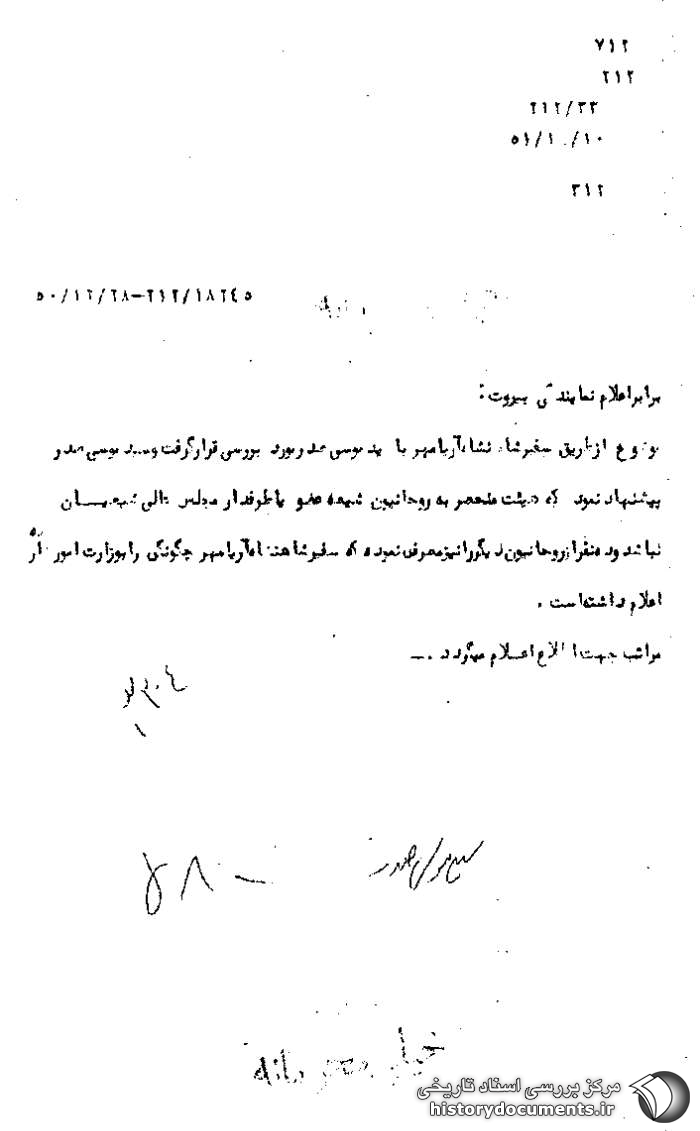 ۷۱۲
۲۱۲
۲۱۲/۳۳
۵۱/۱۰/۱۰
۳۱۲
۵۰/۱۲/۲۸-۲۱۲/۱۸۲٤۵
برابر اعلام نمایندگی بیروت :
موضوع از طریق سفیر شاهنشاه آریامهر با سید موسی صدر مورد بررسی قرار گرفت و سید موسی صدر
پیشنهاد نمود که هیئت منحصر به روحانیون شیعه عضو یا طرفدار مجلس عالی شیعیان
نباشد و ده نفر از روحانیون دیگر را نیز معرفی نموده که سفیر شاهنشاه آریامهر چگونگی را بوزارت امور
اعلام داشته است .
مراتب جهت اطلاع اعلام میگردد .ـ
سید موسی صدر
خیلی محرمانه
مرکز بررسی اسناد تاریخی
historydocuments.ir